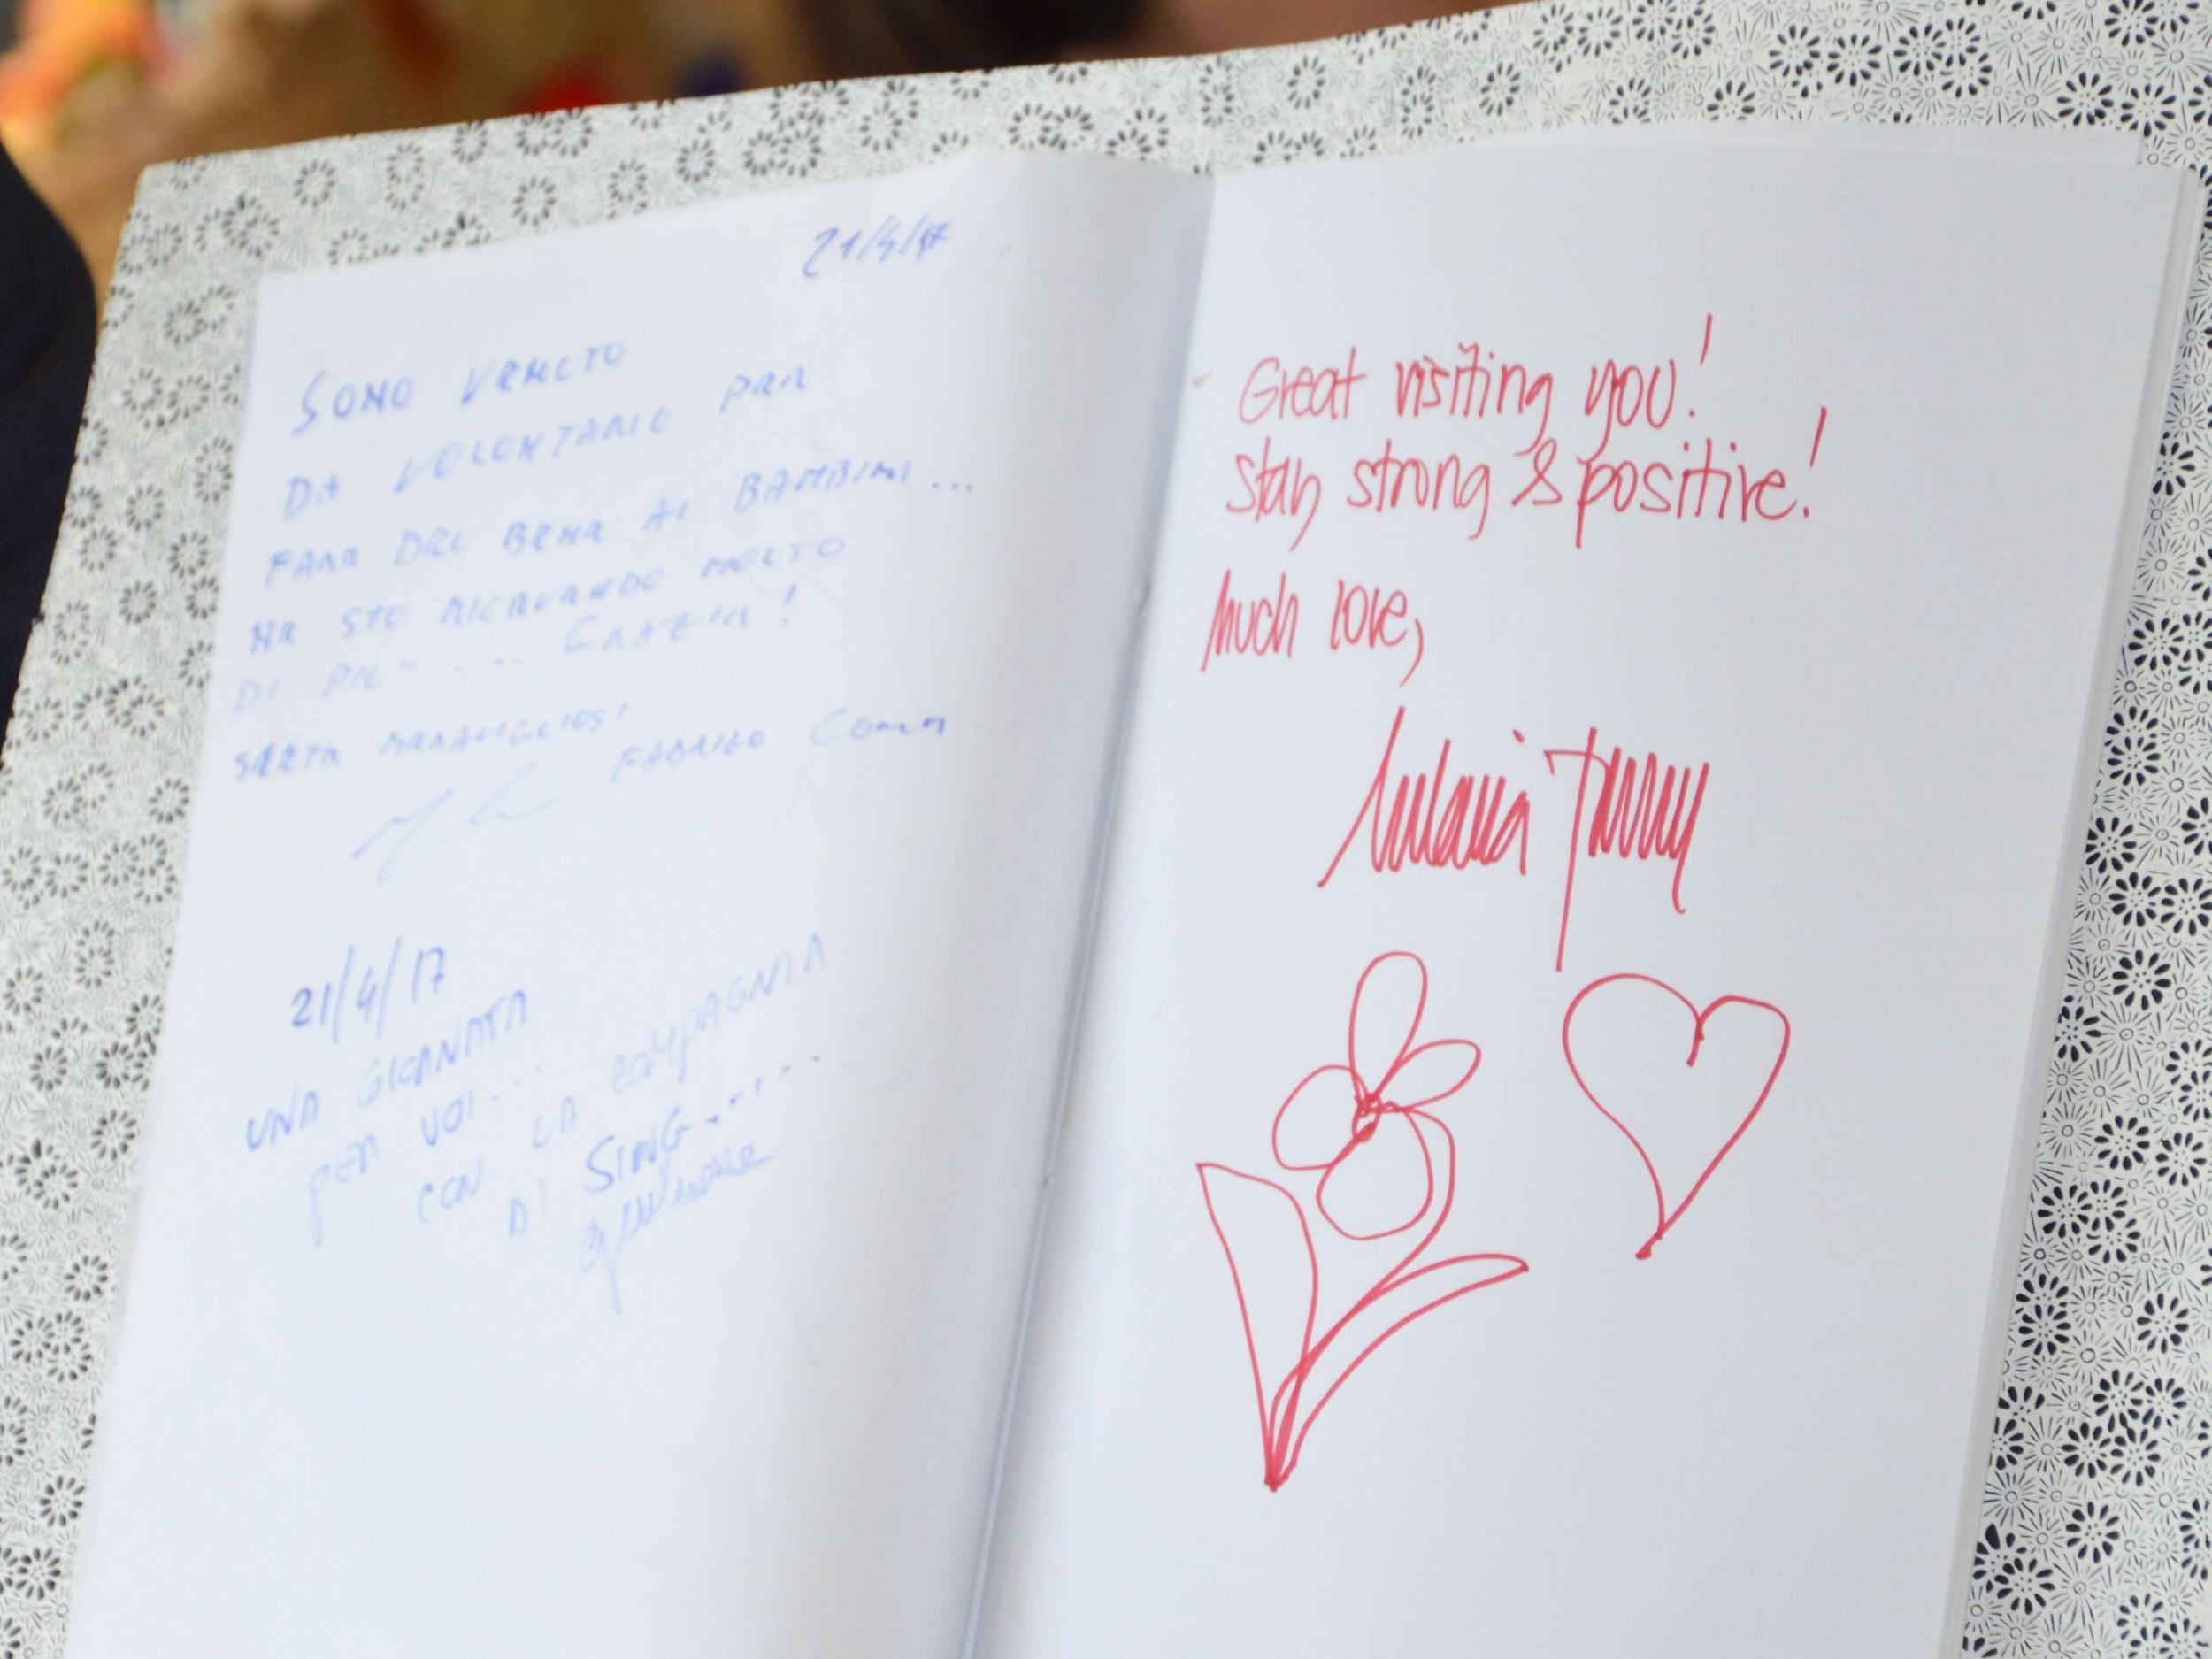 21/4/17
SONO VENUTO
DA VOLONTARIO PER
FARE DEL BENE AI BAMBINI...
NE STO RICAVANDO MOLTO
DI PIU'.... GRAZIE!
SIETE MERAVIGLIOSI
FABRIZO
21/4/17
UNA GIORNATA
PER VOI...
CON LA COMPAGNIA
DI SING.....
Great visiting you!
Stay strong & positive!
Much love,
Melania Trump